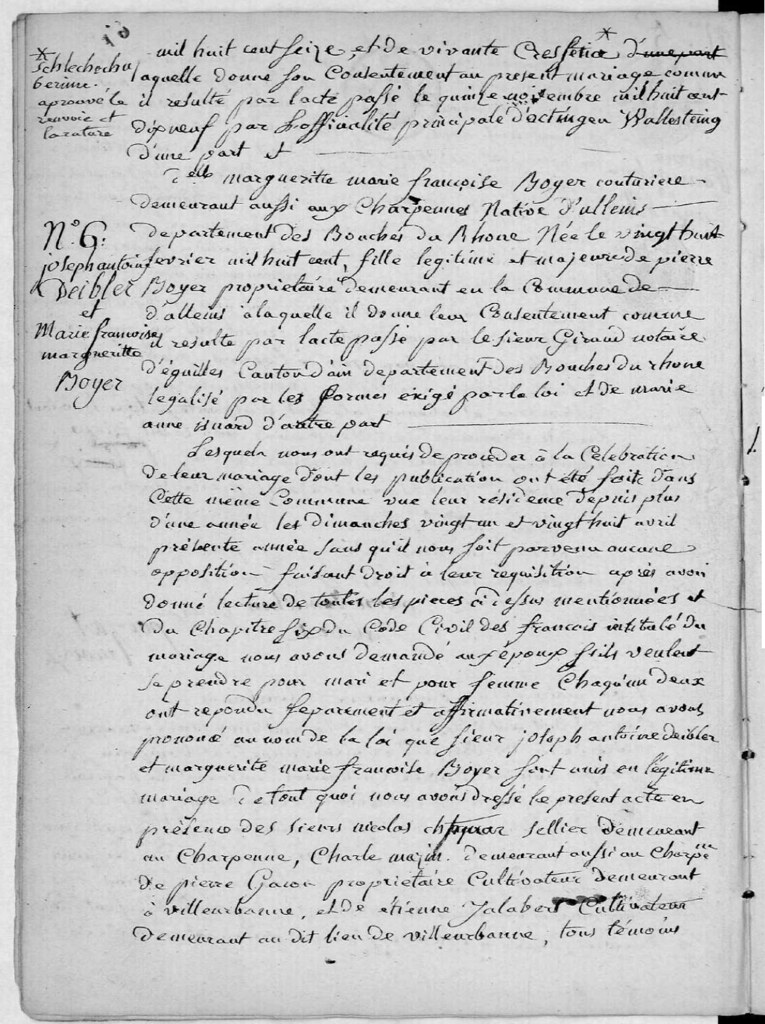 *
Schlechochu
berinne.
aprouvé le
renvoie et
la rature
mil huit cent seize, et de vivante Cressence * d'une part
laquelle donne son Consentement au present mariage comme
il resulte par lacte passé le quinze novembre mil huit cent
dixneuf par L'officialité principale d'octingen Wallesteing
d'une part et
Delle margueritte marie françoise Boyer couturiere
demeurant aussi aux Charpennes Native d'alleins
N.o 6.
joseph antoine
Deibler
et
Marie francoise
margueritte
Boyer
departement des Bouches du Rhone Née le vingt huit
fevrier mil huit cent, fille legitime et majeure de pierre
Boyer propriétaire demeurant en la Commune de
d'alleins a laquelle il donne leur Consentement comme
il resulte par lacte passé par le sieur Giraud notaire
d'éguilles Canton d'aix departement des Bouches du rhone
legalisé par les formes exigé par la loi et de marie
anne isnard d'autre part
Lesquels nous ont requis de proceder à la Celebration
de leur mariage dont les publication ont été faite dans
Cette même Commune vue leur residence depuis plus
d'une année les dimanches vingt un et vingt huit avril
présente année sans qu'il nous soit parvenu aucune
opposition faisant droit à leur requisition après avoir
donné lecture de toutes les pieces ci dessus mentionnées et
du Chapitre six du Code Civil des francois intitulé du
mariage nous avons demandé aux époux s'ils veulent
se prendre pour mari et pour femme Chaqu'un deux
ont repondu separement et affirmativement nous avons
prononcé au nom de la loi que sieur joseph antoine deibler
et marguerite marie francoise Boyer sont unis en légitime
mariage de tout quoi nous avons dressé le present acte en
présence des sieurs nicolas sellier demeurant
au Charpenne, Charle majin. demeurant aussi au Charpenne
de pierre Gacon proprietaire Cultivateur demeurant
à villeurbanne, et de étienne Jalabert Cultivateur
demeurant au dit lieu de villeurbanne, tous témoins